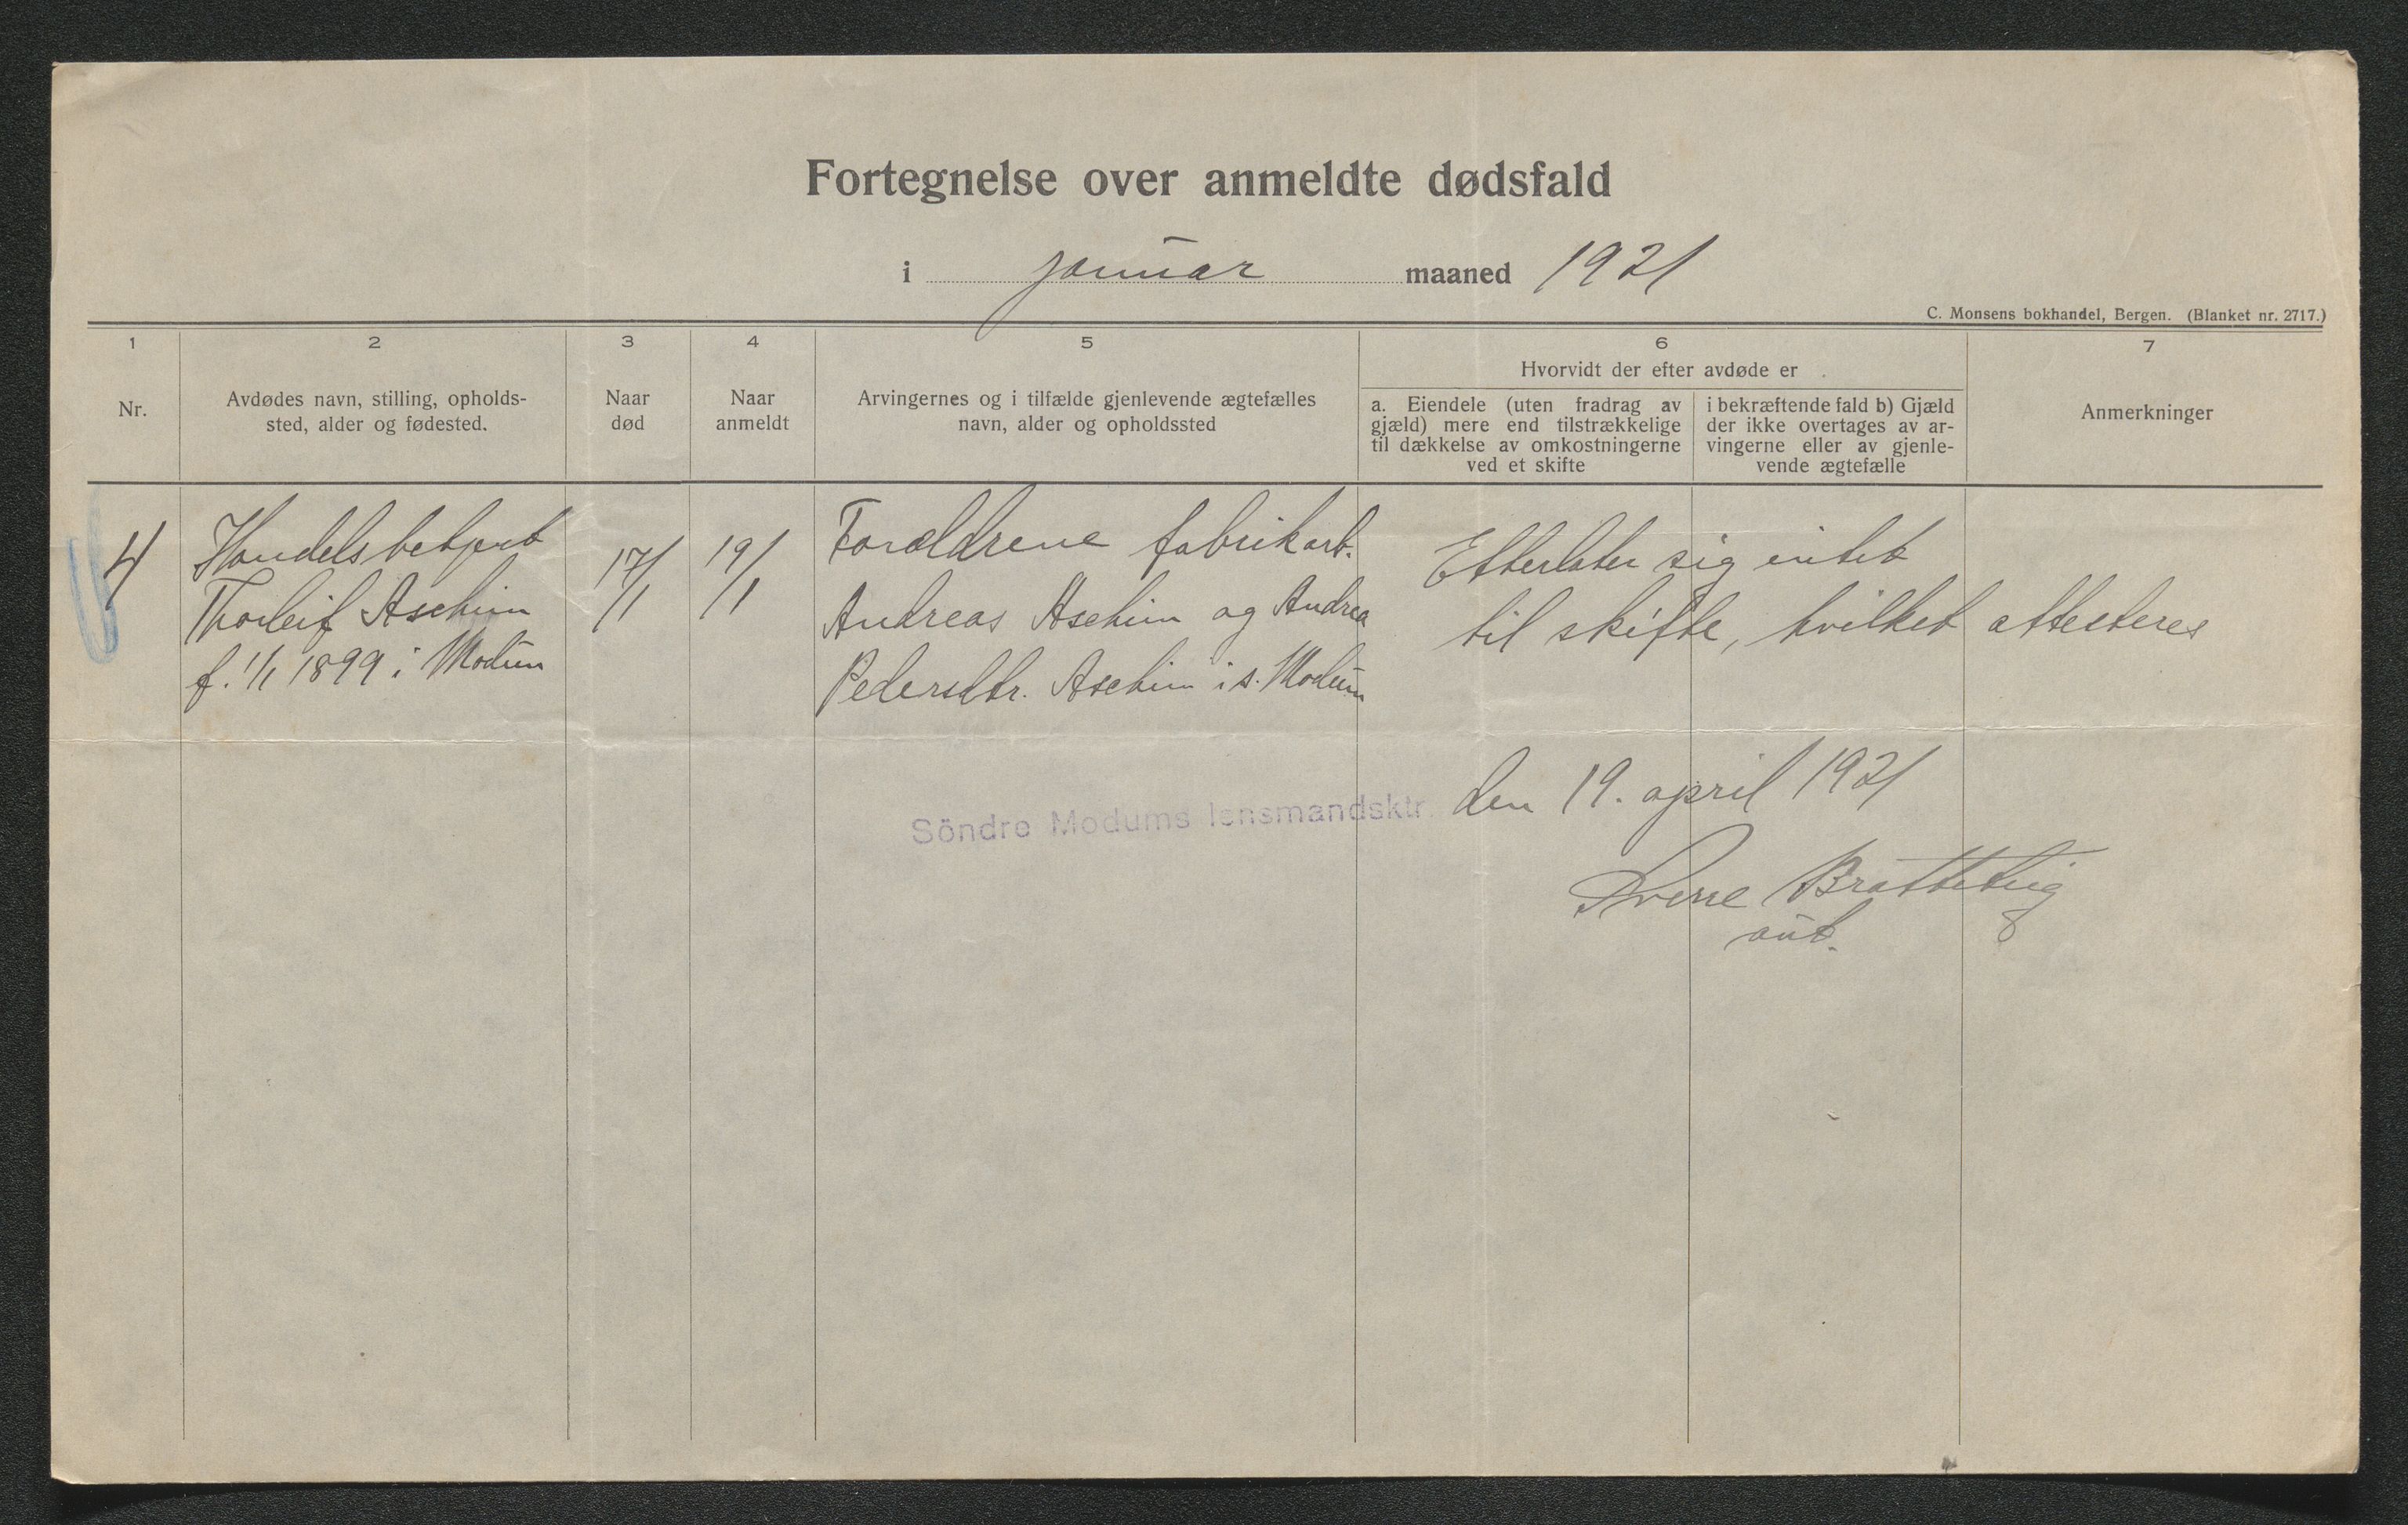 Fortegnelse over anmeldte dødsfald
i januar maaned 1921
C. Monsens bokhandel, Bergen. (Blanket nr. 2717.)
1
Nr.
2
Avdødes navn, stilling, opholds-
sted, alder og fødested.
3
Naar
død
4
Naar
anmeldt
5
Arvingernes og i tilfælde gjenlevende ægtefælles
navn, alder og opholdssted
6
Hvorvidt der efter avdøde er
a. Eiendele (uten fradrag av
gjæld) mere end tilstrækkelige
til dækkelse av omkostningerne
ved et skifte
i bekræftende fald b) Gjæld
der ikke overtages av ar-
vingerne eller av gjenle-
vende ægtefælle
7
Anmerkninger
4
Handelsbetjent
Thorleif Aschim
f. 1/1 1899 i Modum
17/1
19/1
Forældrene fabrikarb.
Andreas Aschim og Andrea
Pedersdtr. Aschim i s. Modum
Efterlater sig intet
til skifte, hvilket attesteres
Söndre Modums lensmandsktr. den 19. april 1921
Sverre
aut.